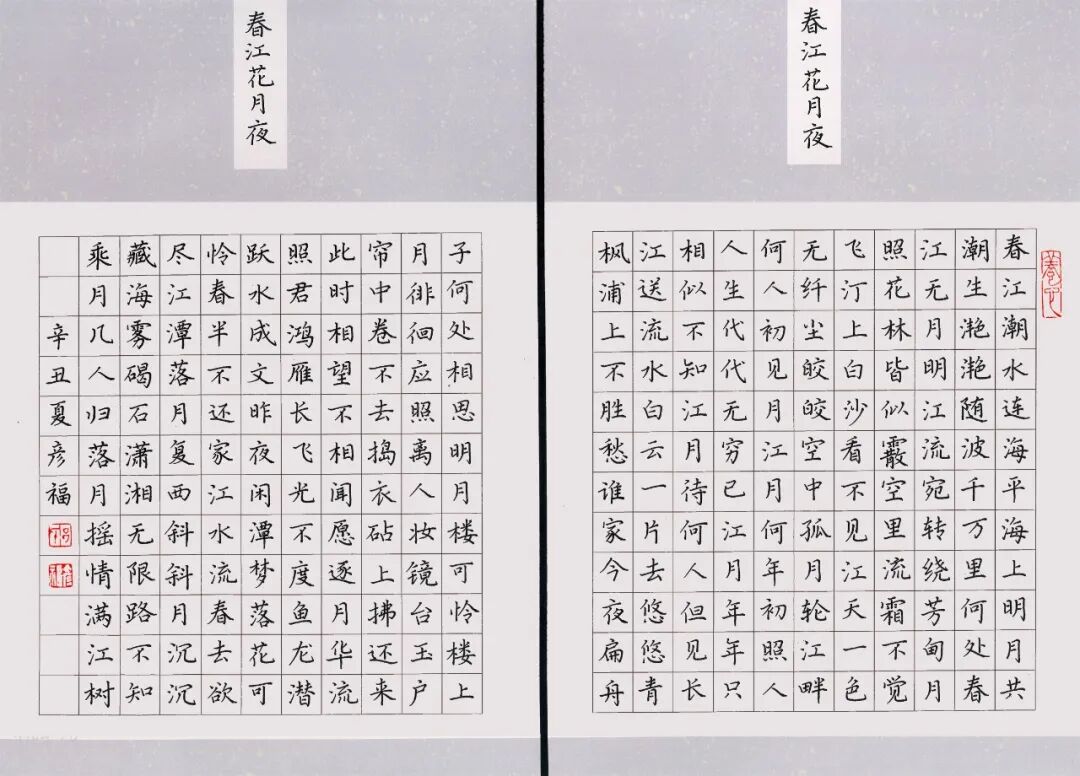 春江花月夜
春江潮水连海平海上明月共
潮生滟滟随波千万里何处春
江无月明江流宛转绕芳甸月
照花林皆似霰空里流霜不觉
飞汀上白沙看不见江天一色
无纤尘皎皎空中孤月轮江畔
何人初见月江月何年初照人
人生代代无穷已江月年年只
相似不知江月待何人但见长
江送流水白云一片去悠悠青
枫浦上不胜愁谁家今夜扁舟
春江花月夜
子何处相思明月楼可怜楼上
月徘徊应照离人妆镜台玉户
帘中卷不去捣衣砧上拂还来
此时相望不相闻愿逐月华流
照君鸿雁长飞光不度鱼龙潜
跃水成文昨夜闲潭梦落花可
怜春半不还家江水流春去欲
尽江潭落月复西斜斜月沉沉
藏海雾碣石潇湘无限路不知
乘月几人归落月摇情满江树
辛丑夏彦福